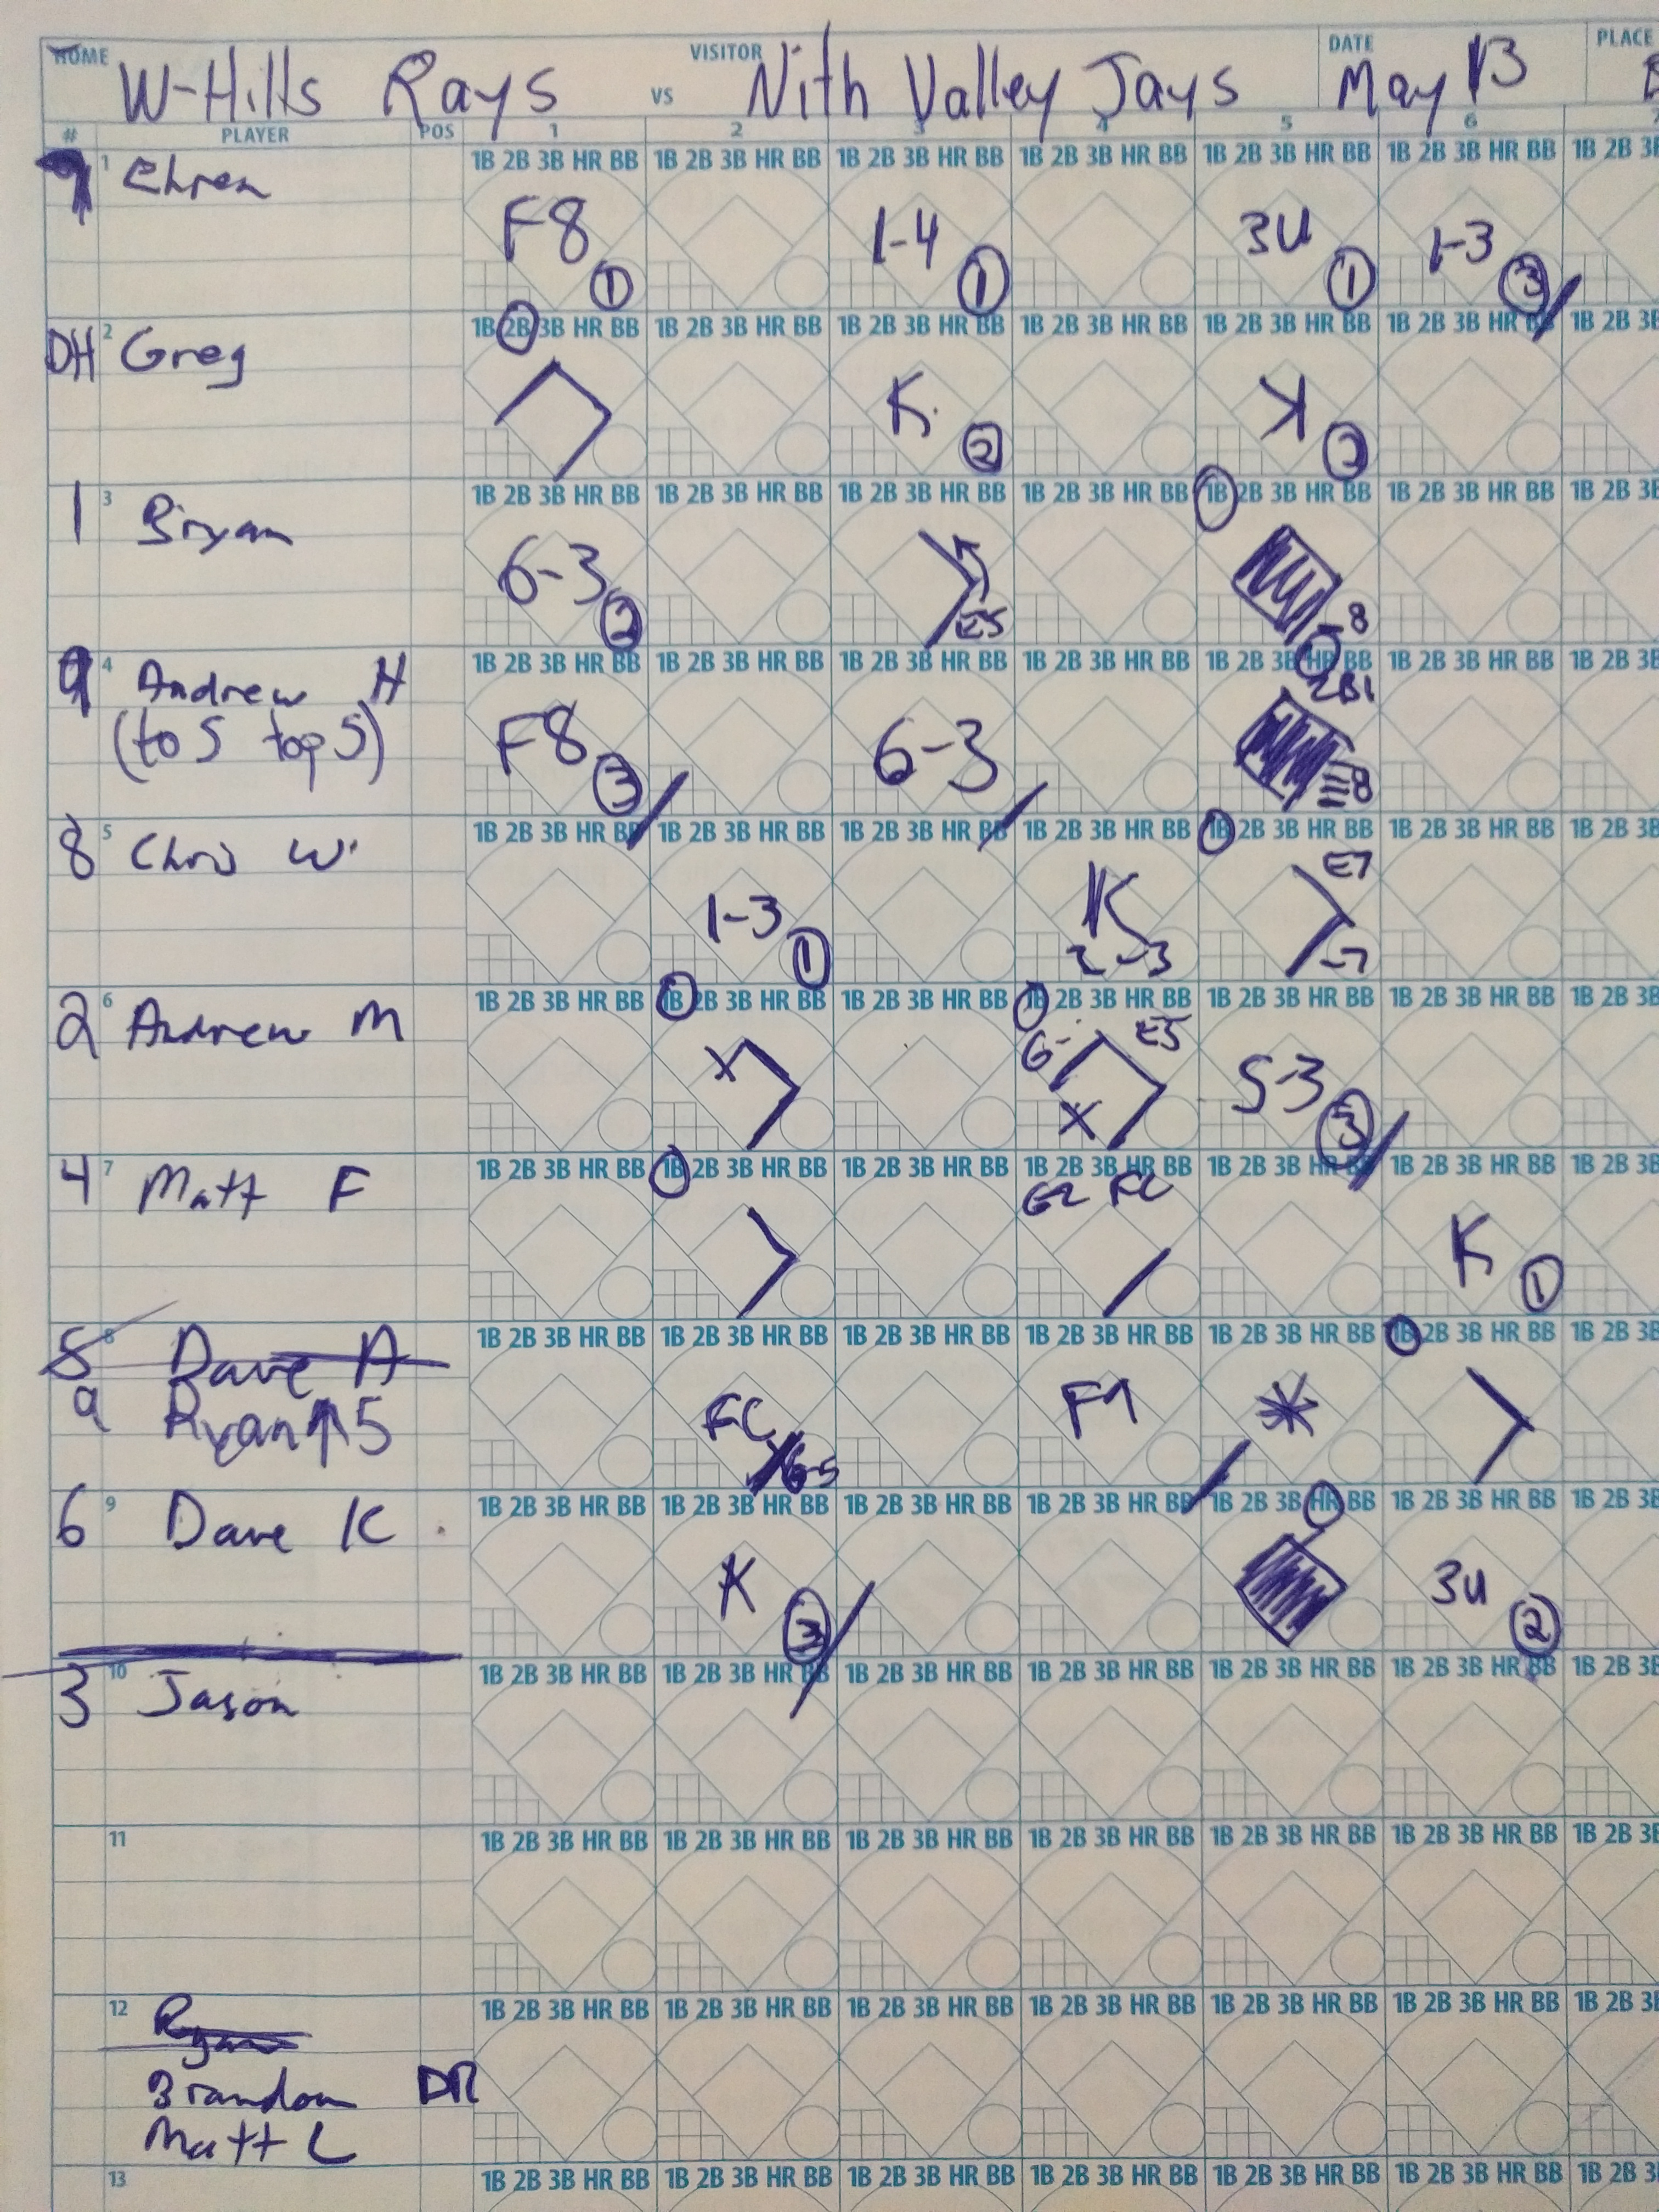 HOME W-Hills Rays VS VISITOR Nith Valley Jays DATE May 13 PLACE
# PLAYER POS 1 2 3 4 5 6
1 Ehren
1B 2B 3B HR BB 1B 2B 3B HR BB 1B 2B 3B HR BB 1B 2B 3B HR BB 1B 2B 3B HR BB 1B 2B 3B HR BB 1B 2B 3B
F8 1 1-4 1 3U 1 1-3 3
DH 2 Greg
1B 2B 3B HR BB 1B 2B 3B HR BB 1B 2B 3B HR BB 1B 2B 3B HR BB 1B 2B 3B HR BB 1B 2B 3B HR BB 1B 2B 3B
K 2 K 2
1 3 Bryan
1B 2B 3B HR BB 1B 2B 3B HR BB 1B 2B 3B HR BB 1B 2B 3B HR BB 1B 2B 3B HR BB 1B 2B 3B HR BB 1B 2B 3B
6-3 2 E5 -8
9 4 Andrew H
(to 5 top 5)
1B 2B 3B HR BB 1B 2B 3B HR BB 1B 2B 3B HR BB 1B 2B 3B HR BB 1B 2B 3B HR BB 1B 2B 3B HR BB 1B 2B 3B
F8 3 6-3 8
8 5 Chris W.
1B 2B 3B HR BB 1B 2B 3B HR BB 1B 2B 3B HR BB 1B 2B 3B HR BB 1B 2B 3B HR BB 1B 2B 3B HR BB 1B 2B 3B
1-3 1 K 2-3 E7 -7
2 6 Andrew M
1B 2B 3B HR BB 1B 2B 3B HR BB 1B 2B 3B HR BB 1B 2B 3B HR BB 1B 2B 3B HR BB 1B 2B 3B HR BB 1B 2B 3B
X 6- E5 X 5-3 3
4 7 Matt F
1B 2B 3B HR BB 1B 2B 3B HR BB 1B 2B 3B HR BB 1B 2B 3B HR BB 1B 2B 3B HR BB 1B 2B 3B HR BB 1B 2B 3B
62 FC K 1
5 8 Dave A
9 Ryan ↑5
1B 2B 3B HR BB 1B 2B 3B HR BB 1B 2B 3B HR BB 1B 2B 3B HR BB 1B 2B 3B HR BB 1B 2B 3B HR BB 1B 2B 3B
FC 6-5 *
6 9 Dave K
1B 2B 3B HR BB 1B 2B 3B HR BB 1B 2B 3B HR BB 1B 2B 3B HR BB 1B 2B 3B HR BB 1B 2B 3B HR BB 1B 2B 3B
K 3 3U 2
3 10 Jason
1B 2B 3B HR BB 1B 2B 3B HR BB 1B 2B 3B HR BB 1B 2B 3B HR BB 1B 2B 3B HR BB 1B 2B 3B HR BB 1B 2B 3B
11
1B 2B 3B HR BB 1B 2B 3B HR BB 1B 2B 3B HR BB 1B 2B 3B HR BB 1B 2B 3B HR BB 1B 2B 3B HR BB 1B 2B 3B
12 Ryan
1B 2B 3B HR BB 1B 2B 3B HR BB 1B 2B 3B HR BB 1B 2B 3B HR BB 1B 2B 3B HR BB 1B 2B 3B HR BB 1B 2B 3B
Brandon DR
Matt L
13
1B 2B 3B HR BB 1B 2B 3B HR BB 1B 2B 3B HR BB 1B 2B 3B HR BB 1B 2B 3B HR BB 1B 2B 3B HR BB 1B 2B 3B